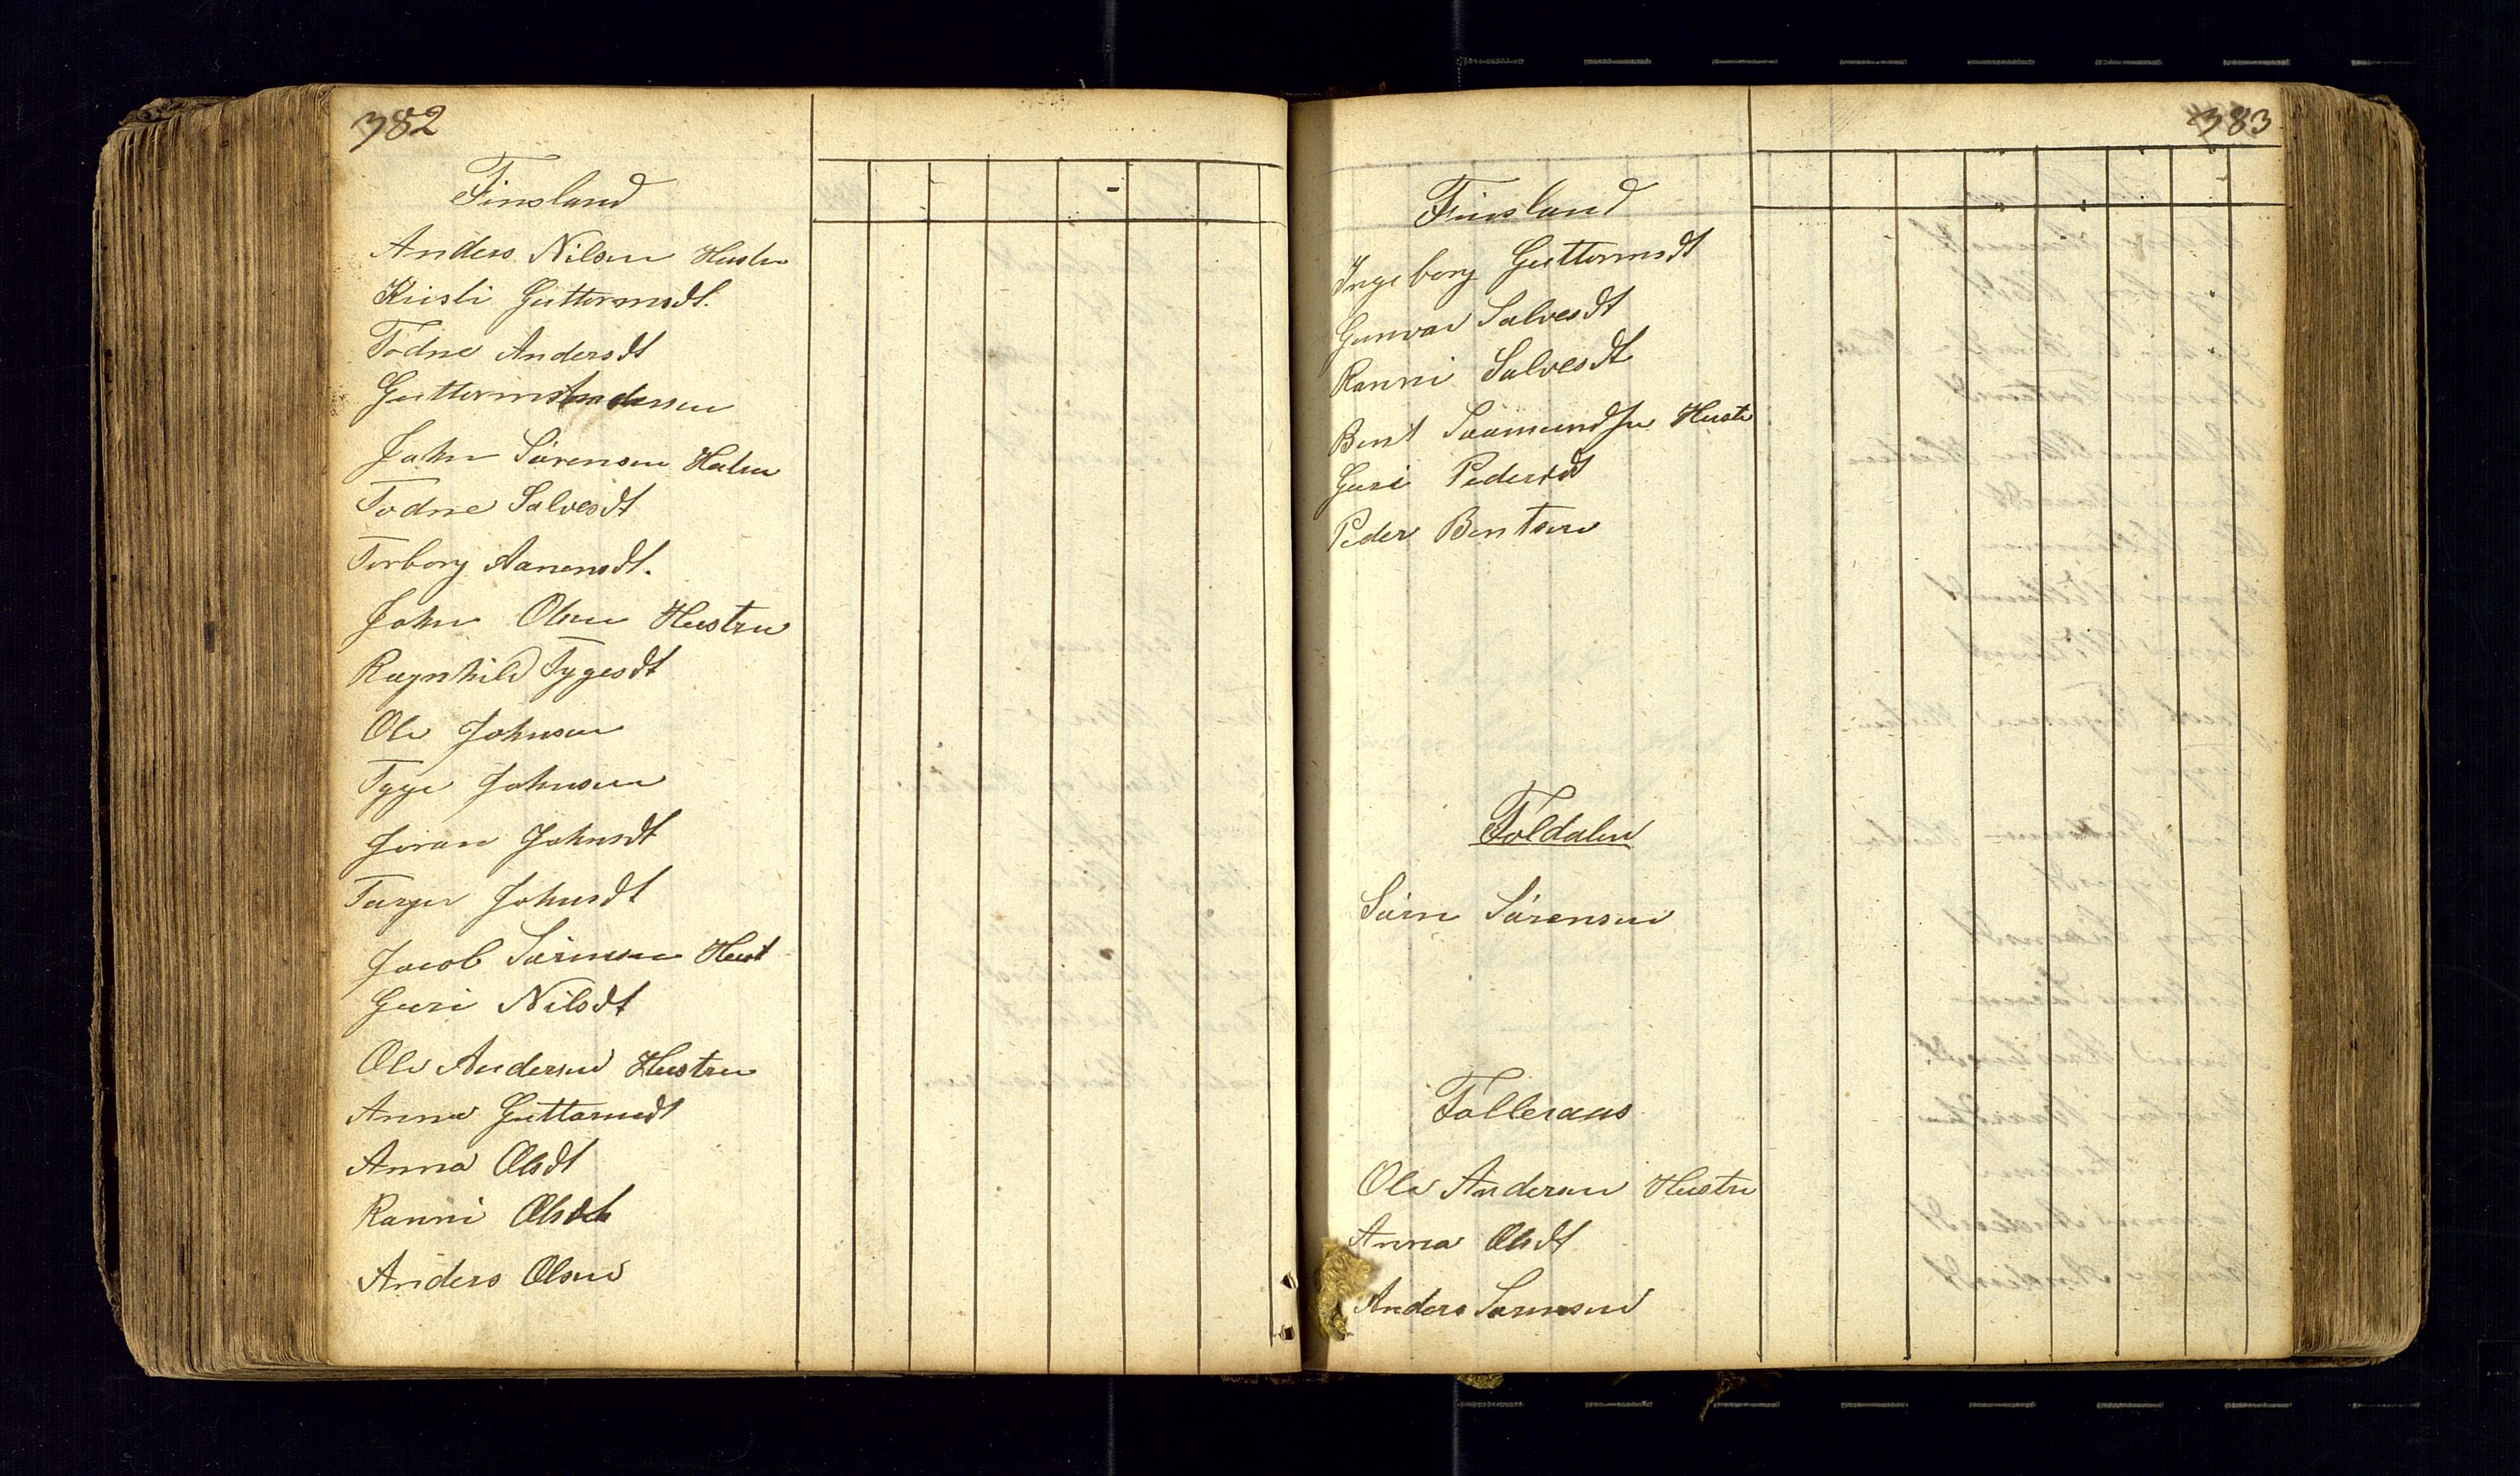 382
Finsland
Anders Nilsen Hustru
Kirsti Guttormsdt.
Todne Andersdt
Guttorm Andersen
John Sörensen Hustru
Todne Salvesdt
Torborg Aanensdt.
John Olsen Hustru
Ragnhild Tygesdt
Ole Johnsen
Tyge Johnsen
Joran Johnsdt
Targer Johnsdt
Jacob Sörensen Hust
Guri Nilsdt
Ole Andersen Hustru
Anna Guttormsdt
Anna Olsdt
Ranni Olsdt
Anders Olsen
383
Finsland
Ingeborg Guttormsdt
Gunvor Salvesdt
Ranni Salvesdt
Bent Saamundsen Hustr
Guri Pedersdt
Peder Bentsen
Foldalen
Sörn Sörensen
Falleraas
Ole Andersen Hustru
Anna Olsdt
Anders Sörensen